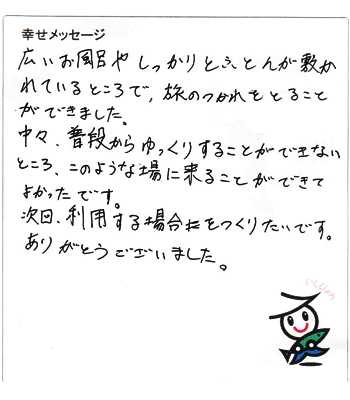 幸せメッセージ
広いお風呂や しっかりとふとんが敷か
れているところで、旅のつかれをとること
ができました。
中々、普段からゆっくりすることができない
ところ、このような場に来ることができて
よかったです。
次回、利用する場合をつくりたいです。
ありがとうございました。